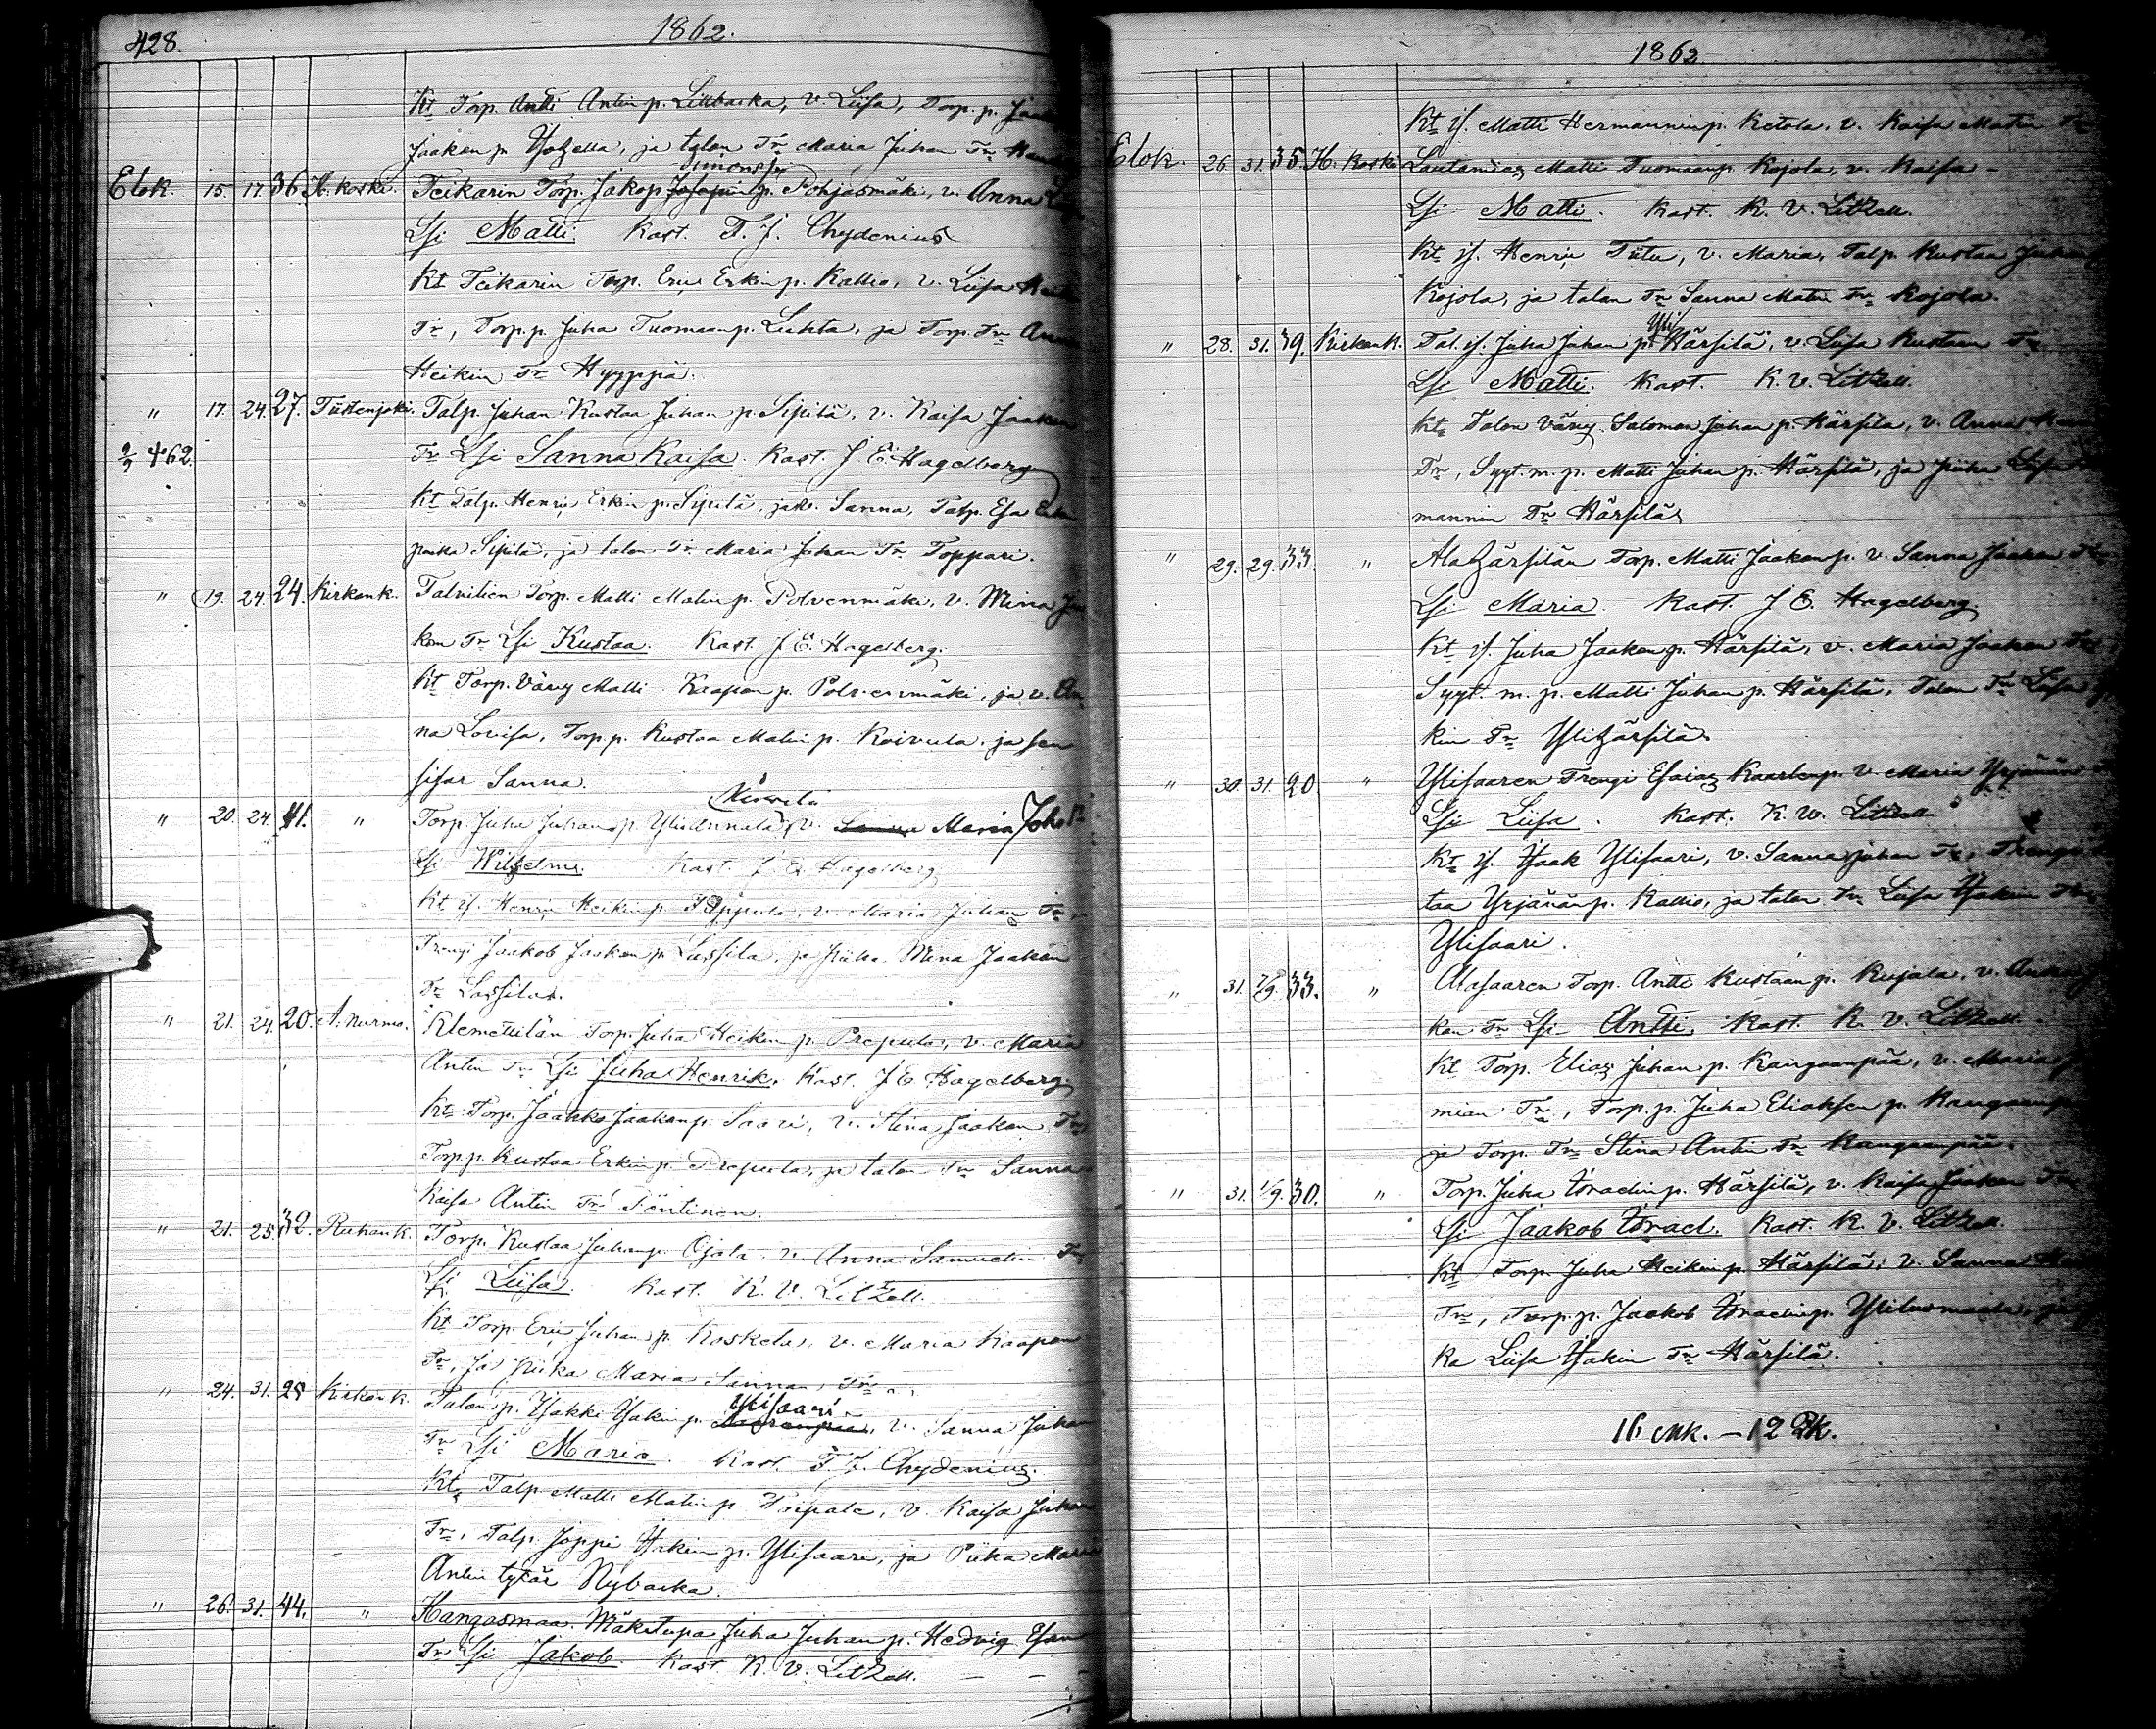 428.
1862.
Kt Torp. Antti Antin p. Lillbacka, v. Liisa, Torp. p.
Jaakon p. Isotella, ja talon Tr Maria Juhan Tr
Simonsp
Elok. 15. 17. 36. H. koski. Teikarin Torp. Jakop Josepin p. Pohjasmäki, v. Anna
Lsi Matti. Kast. F. J. Chydenius
Kt Teikarin Torp. Eric Erkin p. Kallio, v. Liisa
Tr, Torp. p. Juha Tuomaan p. Luhta, ja Torp. Tr
Heikin Tr Hyyppä.
" 17. 24. 27. Tüstenjoki. Talp. Juhan Kustaa Juhan p. Sipilä, v. Kaisa Jaakon
2/9 462. Tr Lsi Sanna Kaisa. Kast. J E. Hagelberg
Kt Talp. Henric Erkin p. Sipilä, ja v. Sanna, Talp. Esa
poika Sipilä, ja talon Tr Maria Juhan Tr Toppari.
" 19. 24. 24. Kirkonk. Talvitien Torp. Matti Matin p. Polvenmäki, v. Mina
kon Tr Lsi Kustaa. Kast. J E. Hagelberg.
Kt Torp. Vävy Matti Kaapon p. Polvenmäki, ja v. An
na Lovisa, Torp. p. Kustaa Matin p. Koivula, ja sen
sisar Sanna.
" 20. 24. 41. " Torp. Juha Juhan p. YliAnnala, v. Sanna Maria Joh. Tr
Lsi Wilhelmi. Kast. J E Hagelberg
Kt if. Henric Heikin p. v. Maria Juhan Tr,
Trengi Jaakob Jaakon p. Lassila, ja piika Mina Jaakon
Tr Lassila.
" 21. 24. 20. A. Nurmo. Klemettilän Torp. Juha Heikin p. Prepula, v. Maria
Antin Tr Lsi Juha Henrik. Kast. J E Hagelberg
Kt Torp. Jaakko Jaakon p. Saari, v. Stina Jaakon Tr
Torp. p. Kustaa Erkin p. Prepula, ja talon Tr Sanna
Kaisa Antin Tr Pöntinen.
" 21. 25. 32. Ruhank. Torp. Kustaa Juhan p. Ojala v. Anna Samuelin Tr
Lsi Liisa. Kast. K. V. Litzell.
Kt Torp. Eric Juhan p. Koskela, v. Maria Kaapon
Tr, ja piika Maria Sannan Tr
Ylisaari
" 24. 31. 28 Kirkonk. Talon p. Isakki Isakin p. v. Sanna Juhan
Tr Lsi Maria. Kast. F. J. Chydenius.
Kt Talp Matti Matin p. v. Kaisa Juhan
Tr, Talp. Joppi Isakin p. Ylisaari, ja Piika Maria
Antin tytär Nybacka.
" 26. 31. 44. " Kangasmaa. Mäkitupa Juha Juhan p. Hedvig Esan
Tr Lsi Jakob. Kast. K. V. Litzell.
1862
Kt if. Matti Hermannin p. Ketola, v. Kaisa Matin Tr
Elok. 26. 31. 35. H. koski Lautamies Matti Tuomaan p. Kojola, v. Kaisa -
Lsi Matti. Kast. K. V. Litzell.
Kt if. Henric Tiitu, v. Maria, Talp. Kustaa Juhan
Kojola, ja talon Tr Sanna Matin Tr Kojola.
Yli
" 28. 31. 39. Kirkonk. Tal. if. Juha Juhan p. Härsilä, v. Liisa Kustaan Tr
Lsi Matti. Kast. K. V. Litzell
Kt Talon Vävy. Salomon Juhan p. Härsilä, v. Anna
Tr, Syyt. m. p. Matti Juhan p. Härsilä, ja piika Liisa
mannin Tr Härsilä
" 29. 29. 33. " Alahärsilän Torp. Matti Jaakon p. v. Sanna Jaakon Tr
Lsi Maria. Kast. J E. Hagelberg.
Kt if. Juha Jaakon p. Härsilä, v. Maria Jaakon Tr
Syyt. m. p. Matti Juhan p. Härsilä, Talon Tr Liisa
kin Tr Ylihärsilä
" 30. 31. 20. " Ylisaaren Trengi Esaias Kaarlon p. v. Maria Yrjänän
Lsi Liisa. Kast. K. V. Litzell
Kt if. Isaak Ylisaari, v. Sanna Juhan Tr, Trengi
taa Yrjänän p. Kallio, ja talon Tr Liisa Isakin Tr
Ylisaari.
" 31. 7/9. 33. " Alasaaren Torp. Antti Kustaan p. Kujala, v.
kon Tr Lsi Antti. Kast. K. V. Litzell.
Kt Torp. Elias Juhan p. Kangaanpää, v. Maria
mian Tr, Torp. p. Juha Eliaksen p.
ja Torp. Tr Stina Antin Tr Kangaanpää.
" 31. 1/9. 30. " Torp. Juha Israelin p. Härsilä, v. Kaisa Jaakon Tr
Lsi Jaakob Israel. Kast. K. V. Litzell.
Kt Torp. Juha Heikin p. Härsilä, v. Sanna
Tr, Torp. p. Jaakob Israelin p.
ka Liisa Isakin Tr Härsilä.
16 Mk. - 12 Vk.